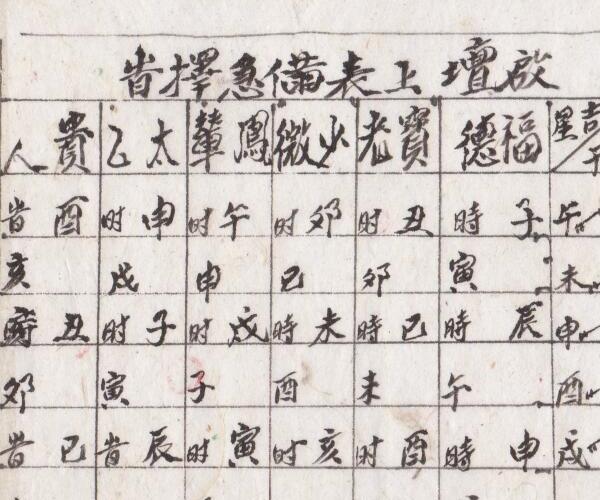 啟壇上表備急擇旹
吉星 福德 寶老 少微 鳳輦 太乙 貴人
午 子時 丑时 卯时 午时 申时 酉旹
未 寅 卯 巳 申 戌 亥
申 辰時 巳時 未時 戌时 子时 丑時
酉 午 未 酉 子 寅 卯
戌 申時 酉时 亥时 寅时 辰旹 巳旹